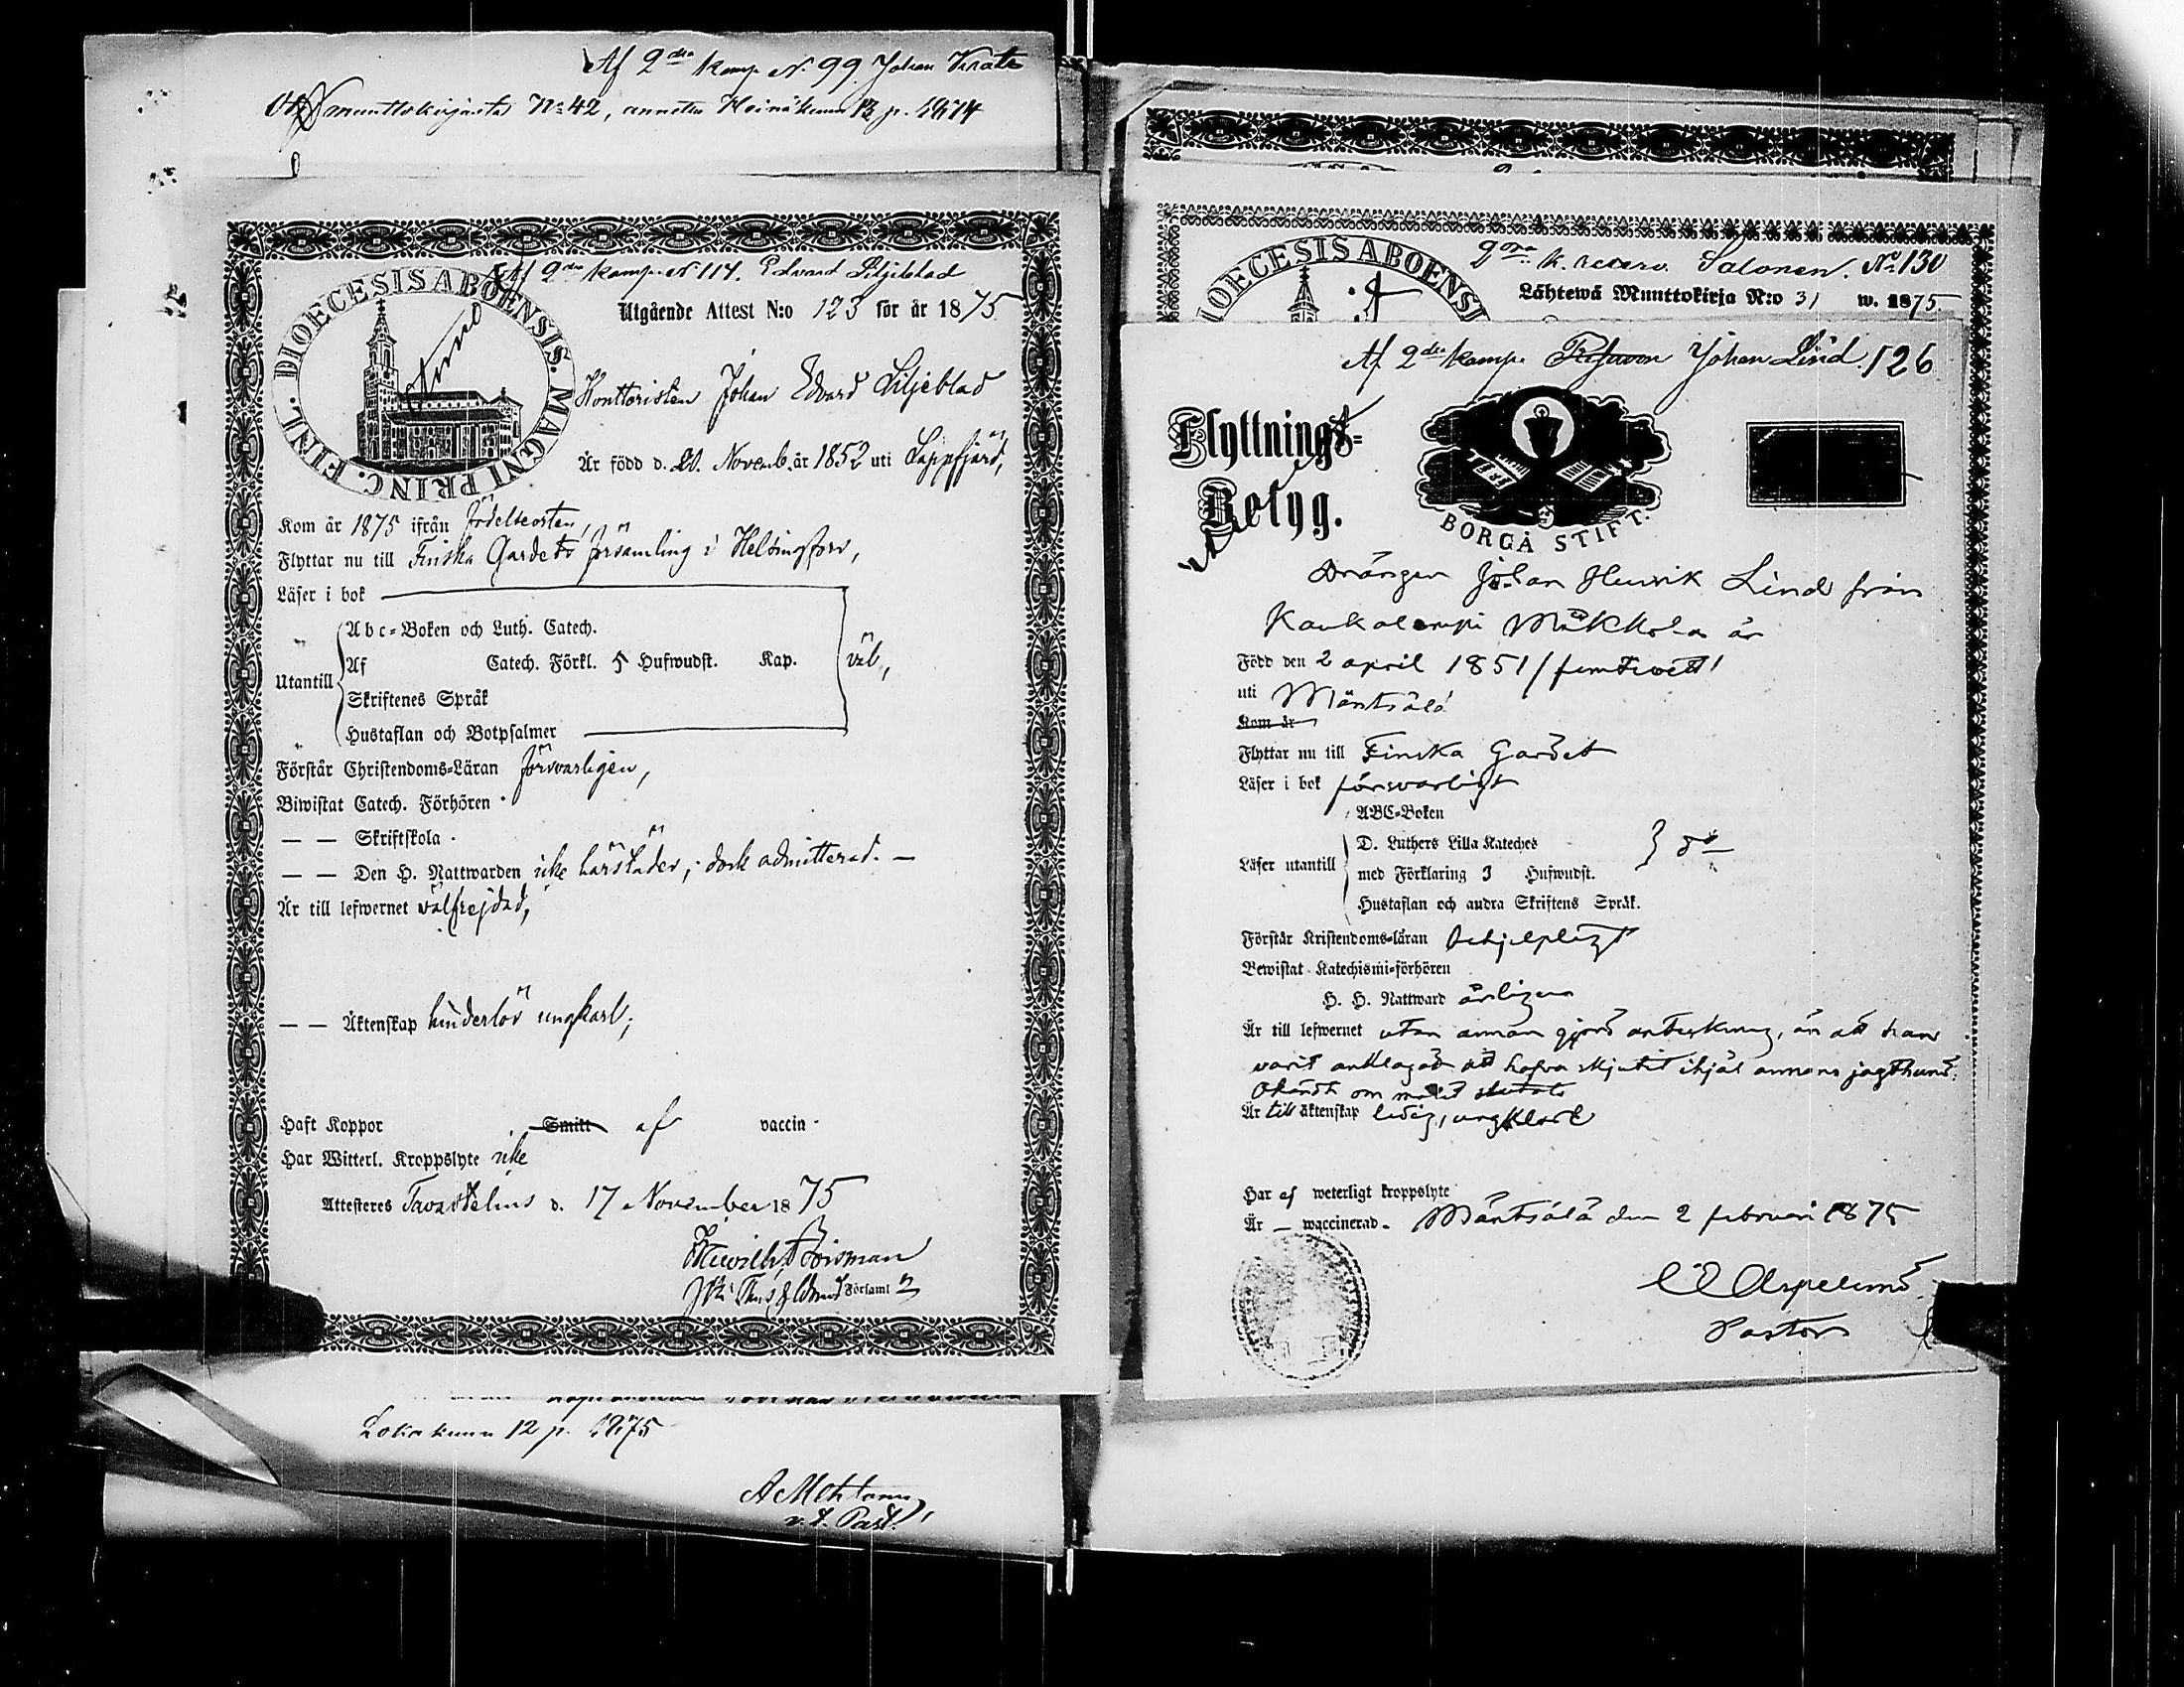 Af 2dra komp. N. 99. Johan
muuttokirjasta No 42, annettu Heinäkuun 12 p. 1874
Af 2dra komp. N. 114. Edvard Liljeblad
DIOECESIS ABOENSIS. MAGNI PRINC. FINL.
Utgående Attest N:o 123 för år 1875
Konttoristen Johan Edvard Liljeblad
Är född d. 20. Novemb. år 1852 uti Lappfjärd,
Kom år 1875 ifrån födelseorten,
Flyttar nu till Finska Gardets församling i Helsingfors,
Läser i bok
Utantill
Abc-Boken och Luth. Catech.
Af Catech. Förkl. 5 Hufwudst. Kap. väl,
Skriftenes Språk
Hustaflan och Botpsalmer
Förstår Christendoms-Läran försvarligen,
Biwistat Catech. Förhören
— — Skriftskola
— — Den H. Nattwarden icke härstädes; dock admitterad. —
Är till lefwernet välfrejdad,
— — Äktenskap hinderlös ungkarl,
Haft Koppor Smitt af vaccin
Har Witterl. Kroppslyte icke
Attesteres Tavastehus d. 17 November 1875
Församl
Lokakuun 12 p. 1875
v. t. Past.
2dra k. reserv. Salonen. No 130
DIOECESIS ABOENSI
Lähtewä Muuttokirja N:o 31 w. 1875.
Af 2dra komp. Johan Lind. 126
Flyttnings-
Betyg.
BORGÅ STIFT.
Drängen Johan Henrik Lind från
Kaukalampi är
Född den 2 april 1851 / femtioett /
uti Mäntsälä
Kom år
Flyttar nu till Finska Gardet
Läser i bok försvarligt
Läser utantill
ABC-Boken
D. Luthers Lilla Kateches
med Förklaring 3 Hufwudst.
Hustaflan och andra Skriftens Språk.
do
Förstår Kristendoms-läran behjelpligt
Bewistat Katechismi-förhören
H. H. Nattward årligen
Är till lefwernet utan annan gjord anteckning, än att han
varit anklagad att hafva skjutit ihjäl annans jagthund.
Okändt om målet slutats
Är till äktenskap ledig, ungkarl
Har ej weterligt kroppslyte
Är — waccinerad. Mäntsälä den 2 februari 1875
Aspelund
Pastor